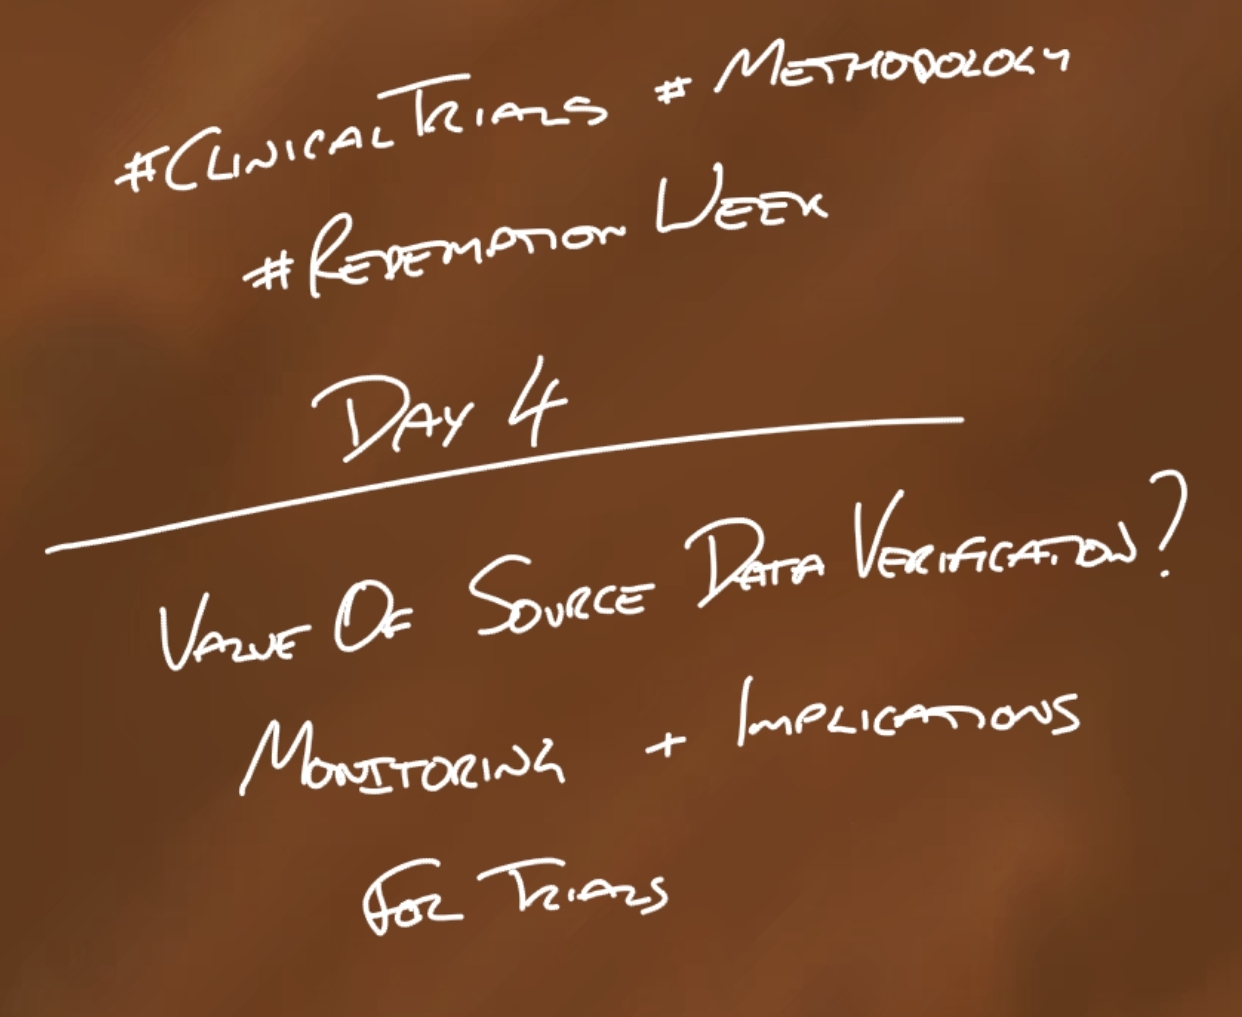 #CLINICALTRIALS #METHODOLOGY
#REDEMPTION WEEK
DAY 4
VALUE OF SOURCE DATA VERIFICATION?
MONITORING + IMPLICATIONS
FOR TRIALS